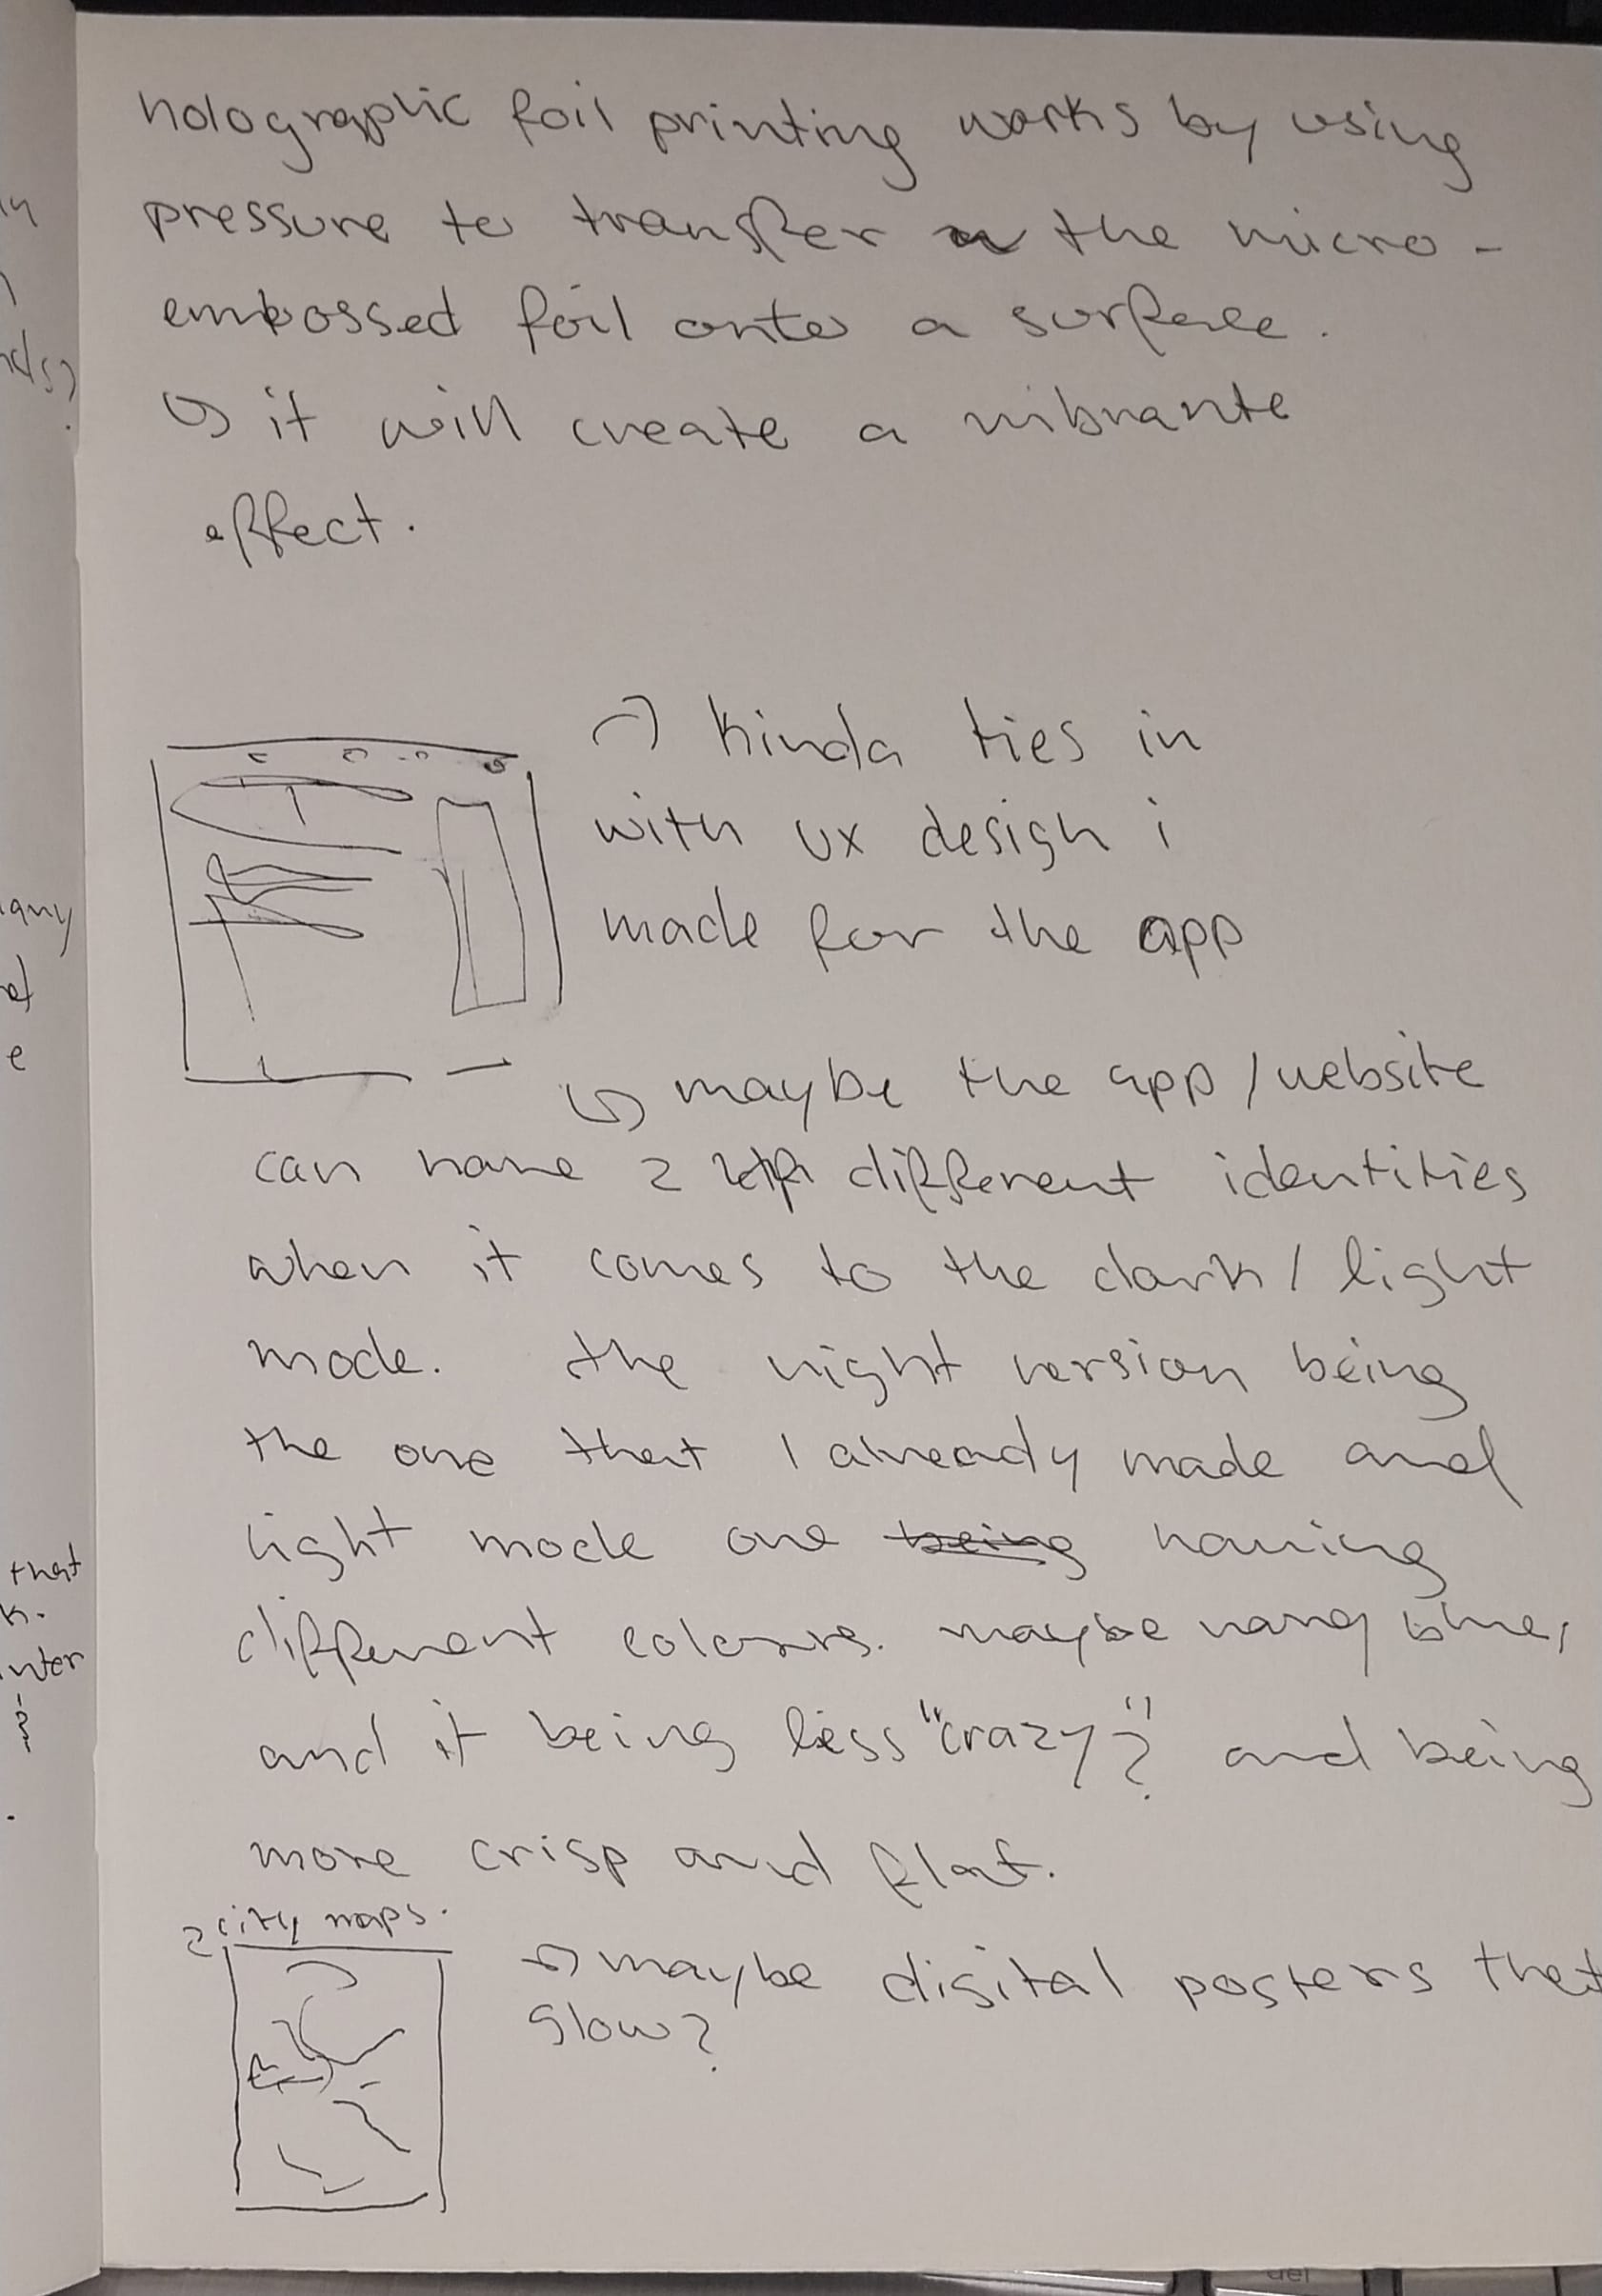 holographic foil printing works by using
pressure to transfer the micro-
embossed foil onto a surface.
↳ it will create a vibrante
effect.
→ kinda ties in
with ux design i
made for the app
↳ maybe the app / website
can have 2 different identities
when it comes to the dark / light
mode. the night version being
the one that I already made and
light mode one being having
different colours. maybe navy blue,
and it being less "crazy"? and being
more crisp and flat.
2 city maps.
→ maybe digital posters that
glow?
any
of
e
that
k.
del